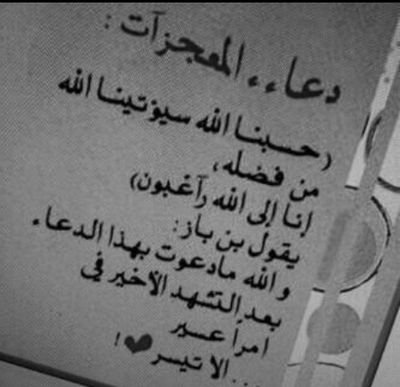 دعاء.. المعجزات :
(حسبنا الله سيؤتينا الله
من فضله،
إنا إلى الله رآغبون)
يقول بن باز:
والله مادعوت بهذا الدعاء
بعد التشهد الآخير في
امراً عسير
...الا تيسر❤!